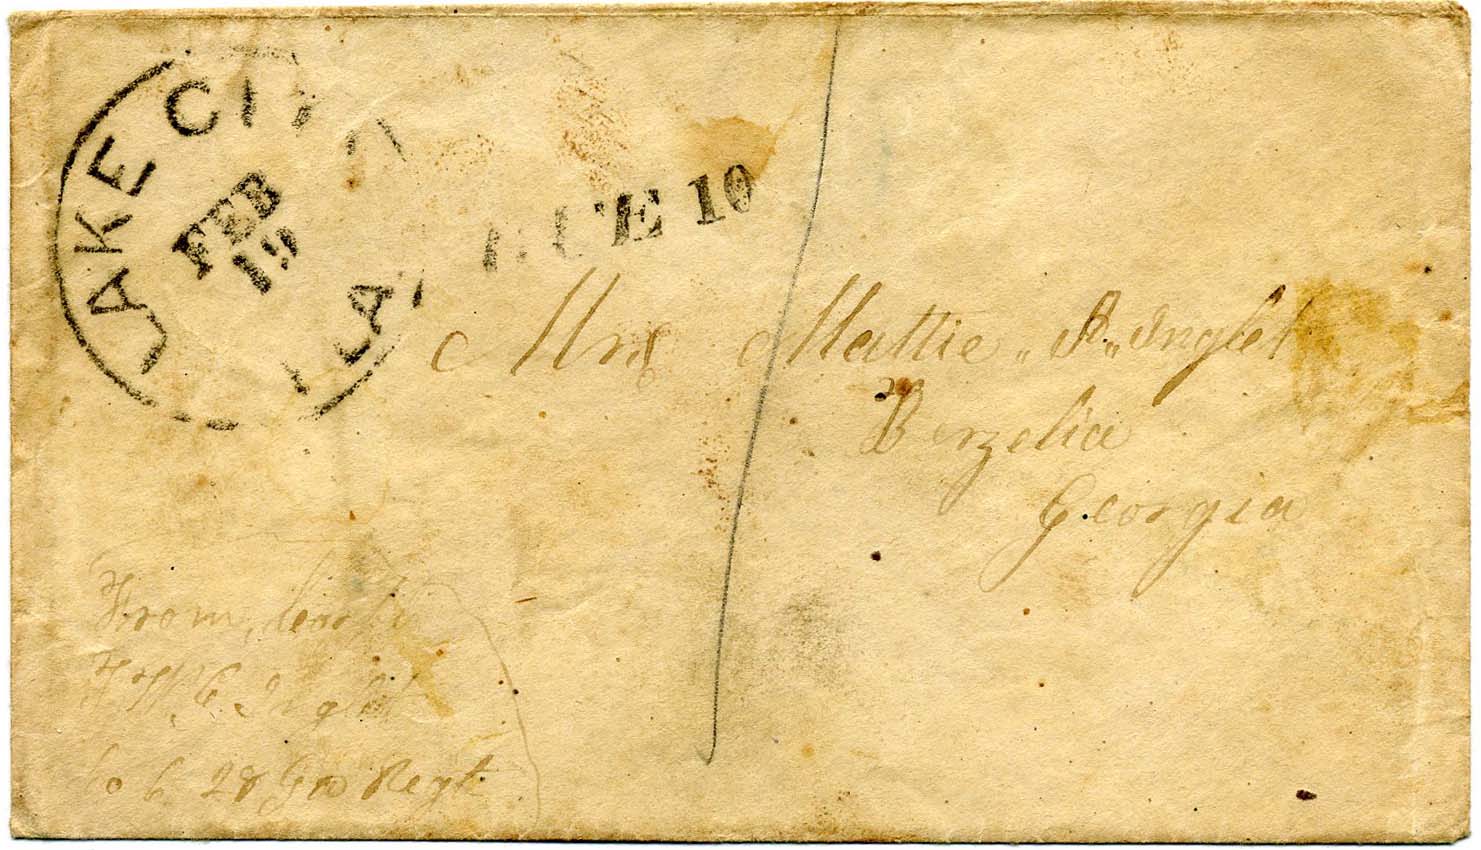 LAKE CITY
FEB
19
FLA.
DUE 10
Mrs Mattie „A„ Inglet
Berzelia
Georgia
From, Capt
Inglet
Co C 28 Ga Regt